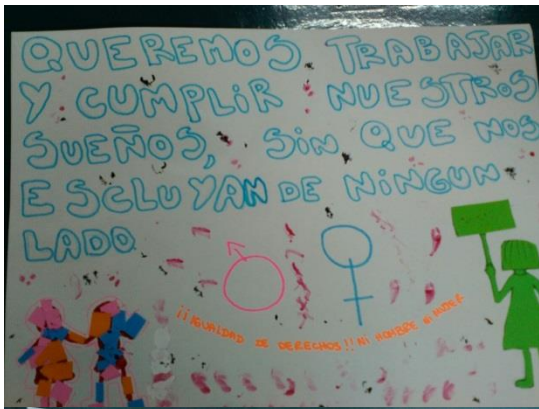 QUEREMOS TRABAJAR
Y CUMPLIR NUESTROS
SUEÑOS, SIN QUE NOS
ESCLUYAN DE NINGUN
LADO
¡¡IGUALDAD DE DERECHOS!! NI HOMBRE NI MUJER